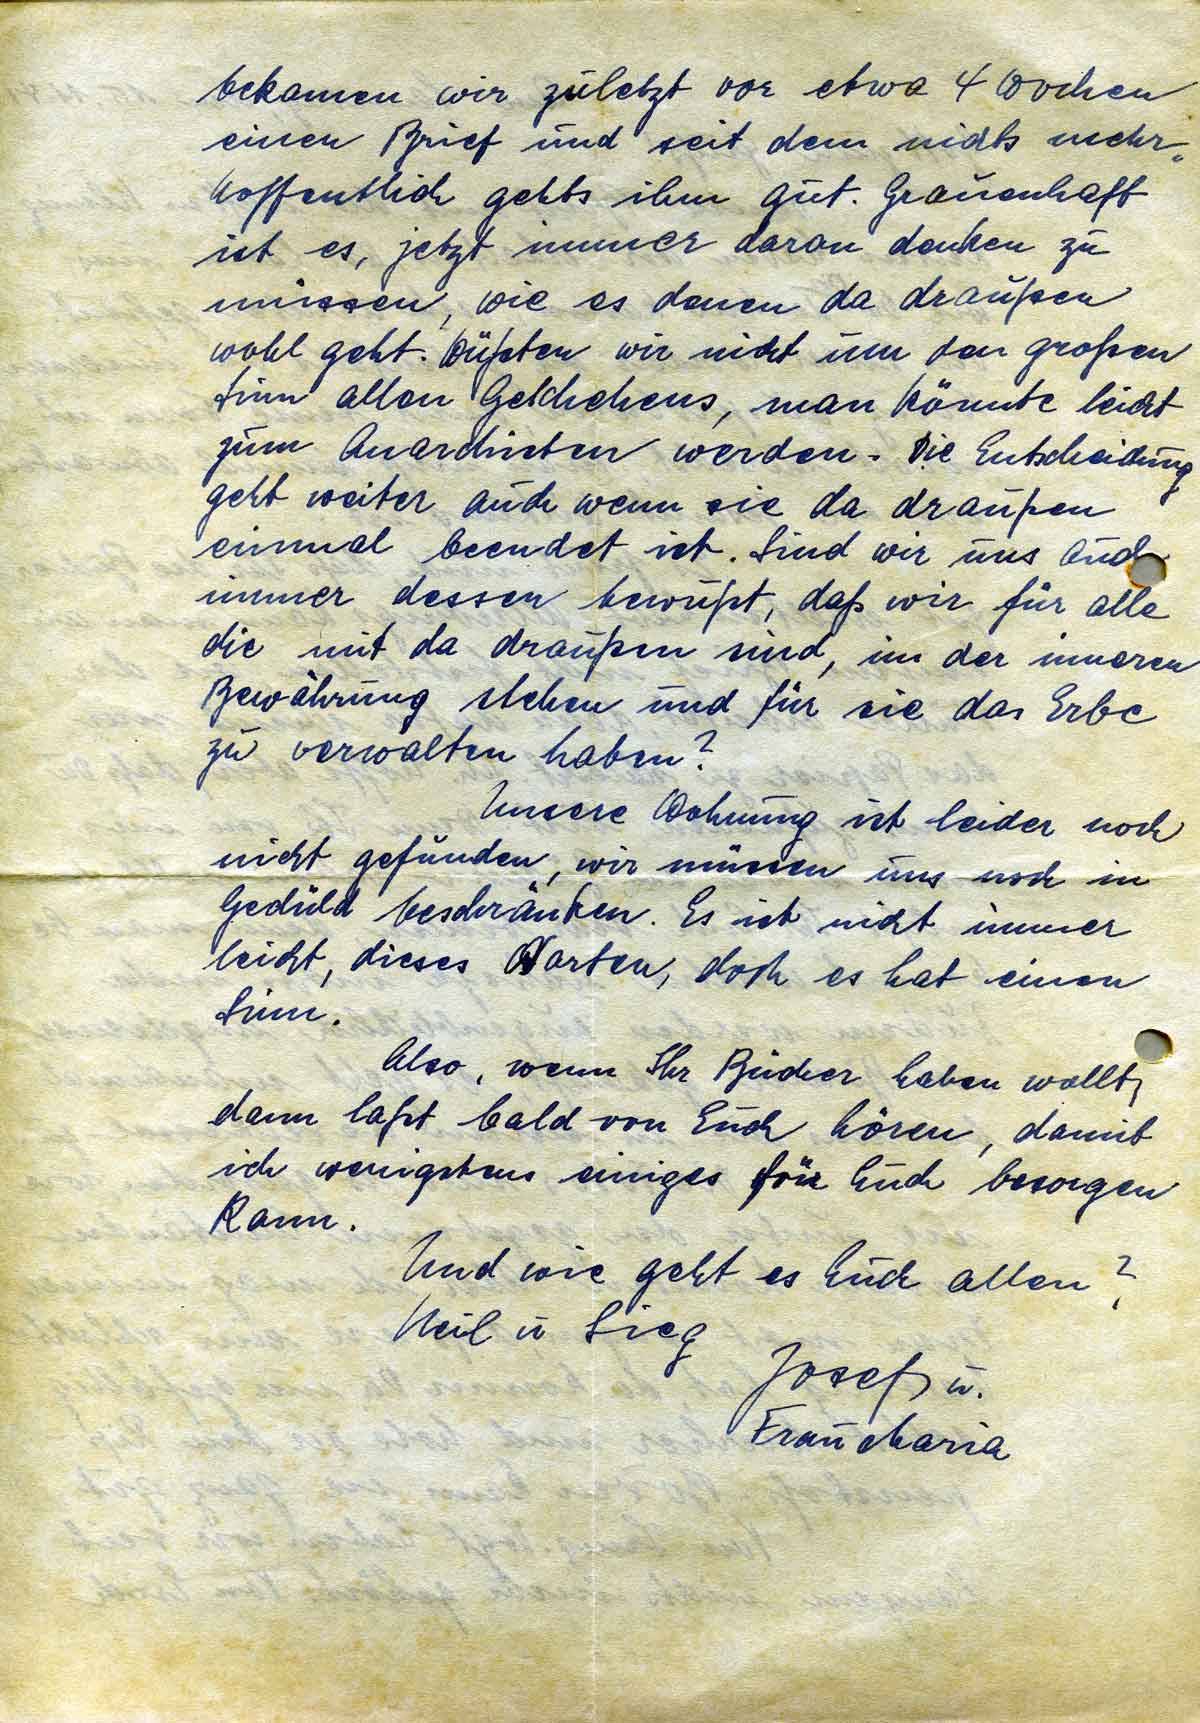 bekamen wir zuletzt vor etwa 4 Wochen
einen Brief und seit dem nichts mehr.
Hoffentlich gehts ihm gut. Grauenhaft
ist es, jetzt immer daran denken zu
müssen, wie es denen da draußen
wohl geht. Wüßten wir nicht um den großen
Sinn allen Geschehens, man könnte leicht
zum Anarchisten werden. Die Entscheidung
geht weiter auch wenn sie da draußen
einmal beendet ist. Sind wir uns auch
immer dessen bewußt, daß wir für alle
die mit da draußen sind, in der inneren
Bewährung stehen und für sie das Erbe
zu verwalten haben?
Unsere Wohnung ist leider noch
nicht gefunden, wir müssen uns noch in
Geduld beschränken. Es ist nicht immer
leicht, dieses Warten, doch es hat einen
Sinn.
Also, wenn Ihr Bücher haben wollt,
dann laßt bald von Euch hören, damit
ich wenigstens einiges für Euch besorgen
kann.
Und wie geht es Euch allen?
Heil u Sieg
Josef u.
Frau Maria